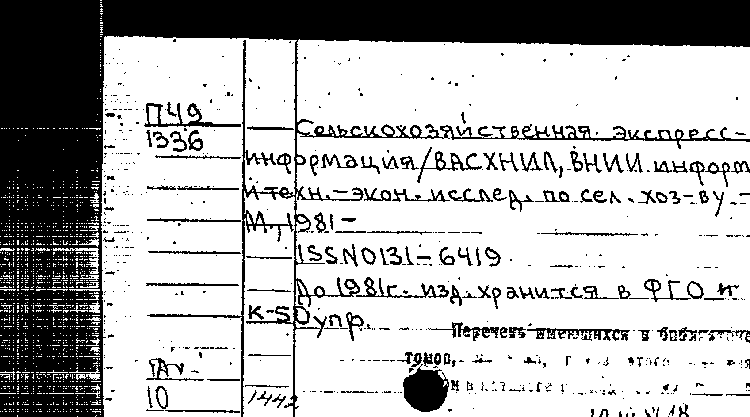 П49
1336
Сельскохозяйственная экспресс-
информация/ВАСХНИЛ, ВНИИ информ
и техн.-экон. исслед. по сел. хоз-ву. -
М., 1981-
ISSN0131-6419
До 1981г. изд. хранится в ФГО и
К-SO упр.
Перечень имеющихся в библиотеке
томов,
10
1442